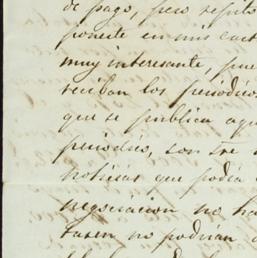 de pago, pero repito
ponerte en mis cart
muy interesante, pue
reciban los periodicos
que se publica aqu
periodico, son tre
noticias que podia
negociacion no ha
taren no podrian